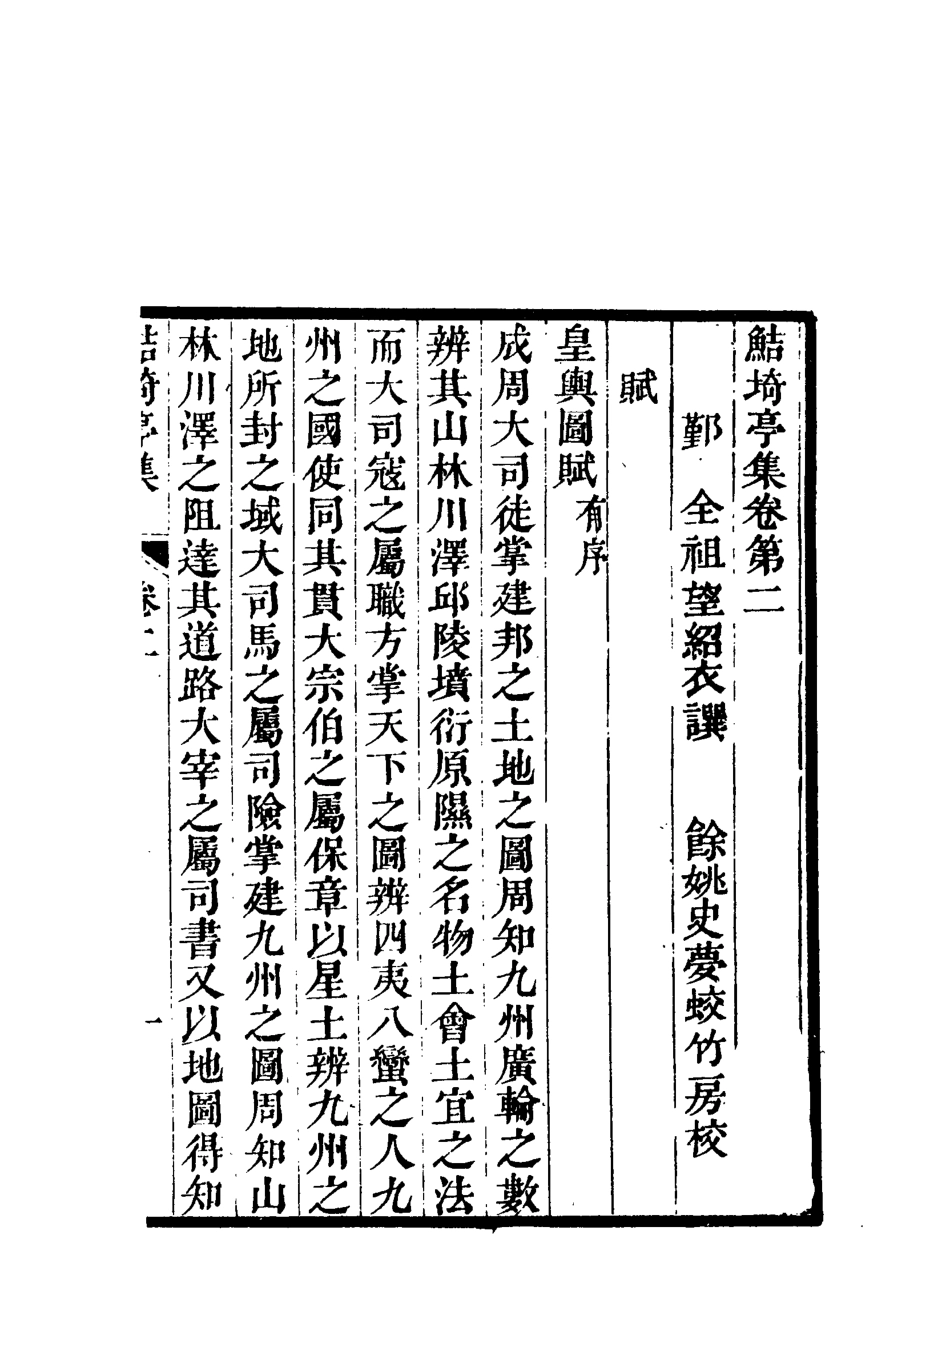 鮚埼亭集卷第二
鄞　全祖望紹衣譔　餘姚史夢蛟竹房校
賦
皇輿圖賦有序
成周大司徒掌建邦之土地之圖周知九州廣輪之數
辨其山林川澤邱陵墳衍原隰之名物土會土宜之法
而大司寇之屬職方掌天下之圖辨四夷八蠻之人九
州之國使同其貫大宗伯之屬保章以星土辨九州之
地所封之域大司馬之屬司險掌建九州之圖周知山
林川澤之阻達其道路大宰之屬司書又以地圖得知
鮚埼亭集　卷二　一